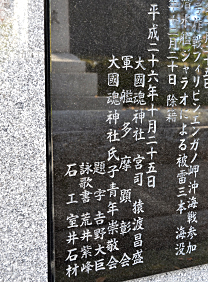 五日
レイテ フィリピン エンガノ岬沖海戦参加
シャラオによる被雷三本 海没
十二月二十日 除籍
平成二十六年十月二十五日
大國魂神社 宮司 猿渡昌盛
軍艦 多摩 顕彰会
大國魂神社氏子青年崇敬会
題字 吉野大巨
詠歌書 荒井紫峰
石工 室井石材